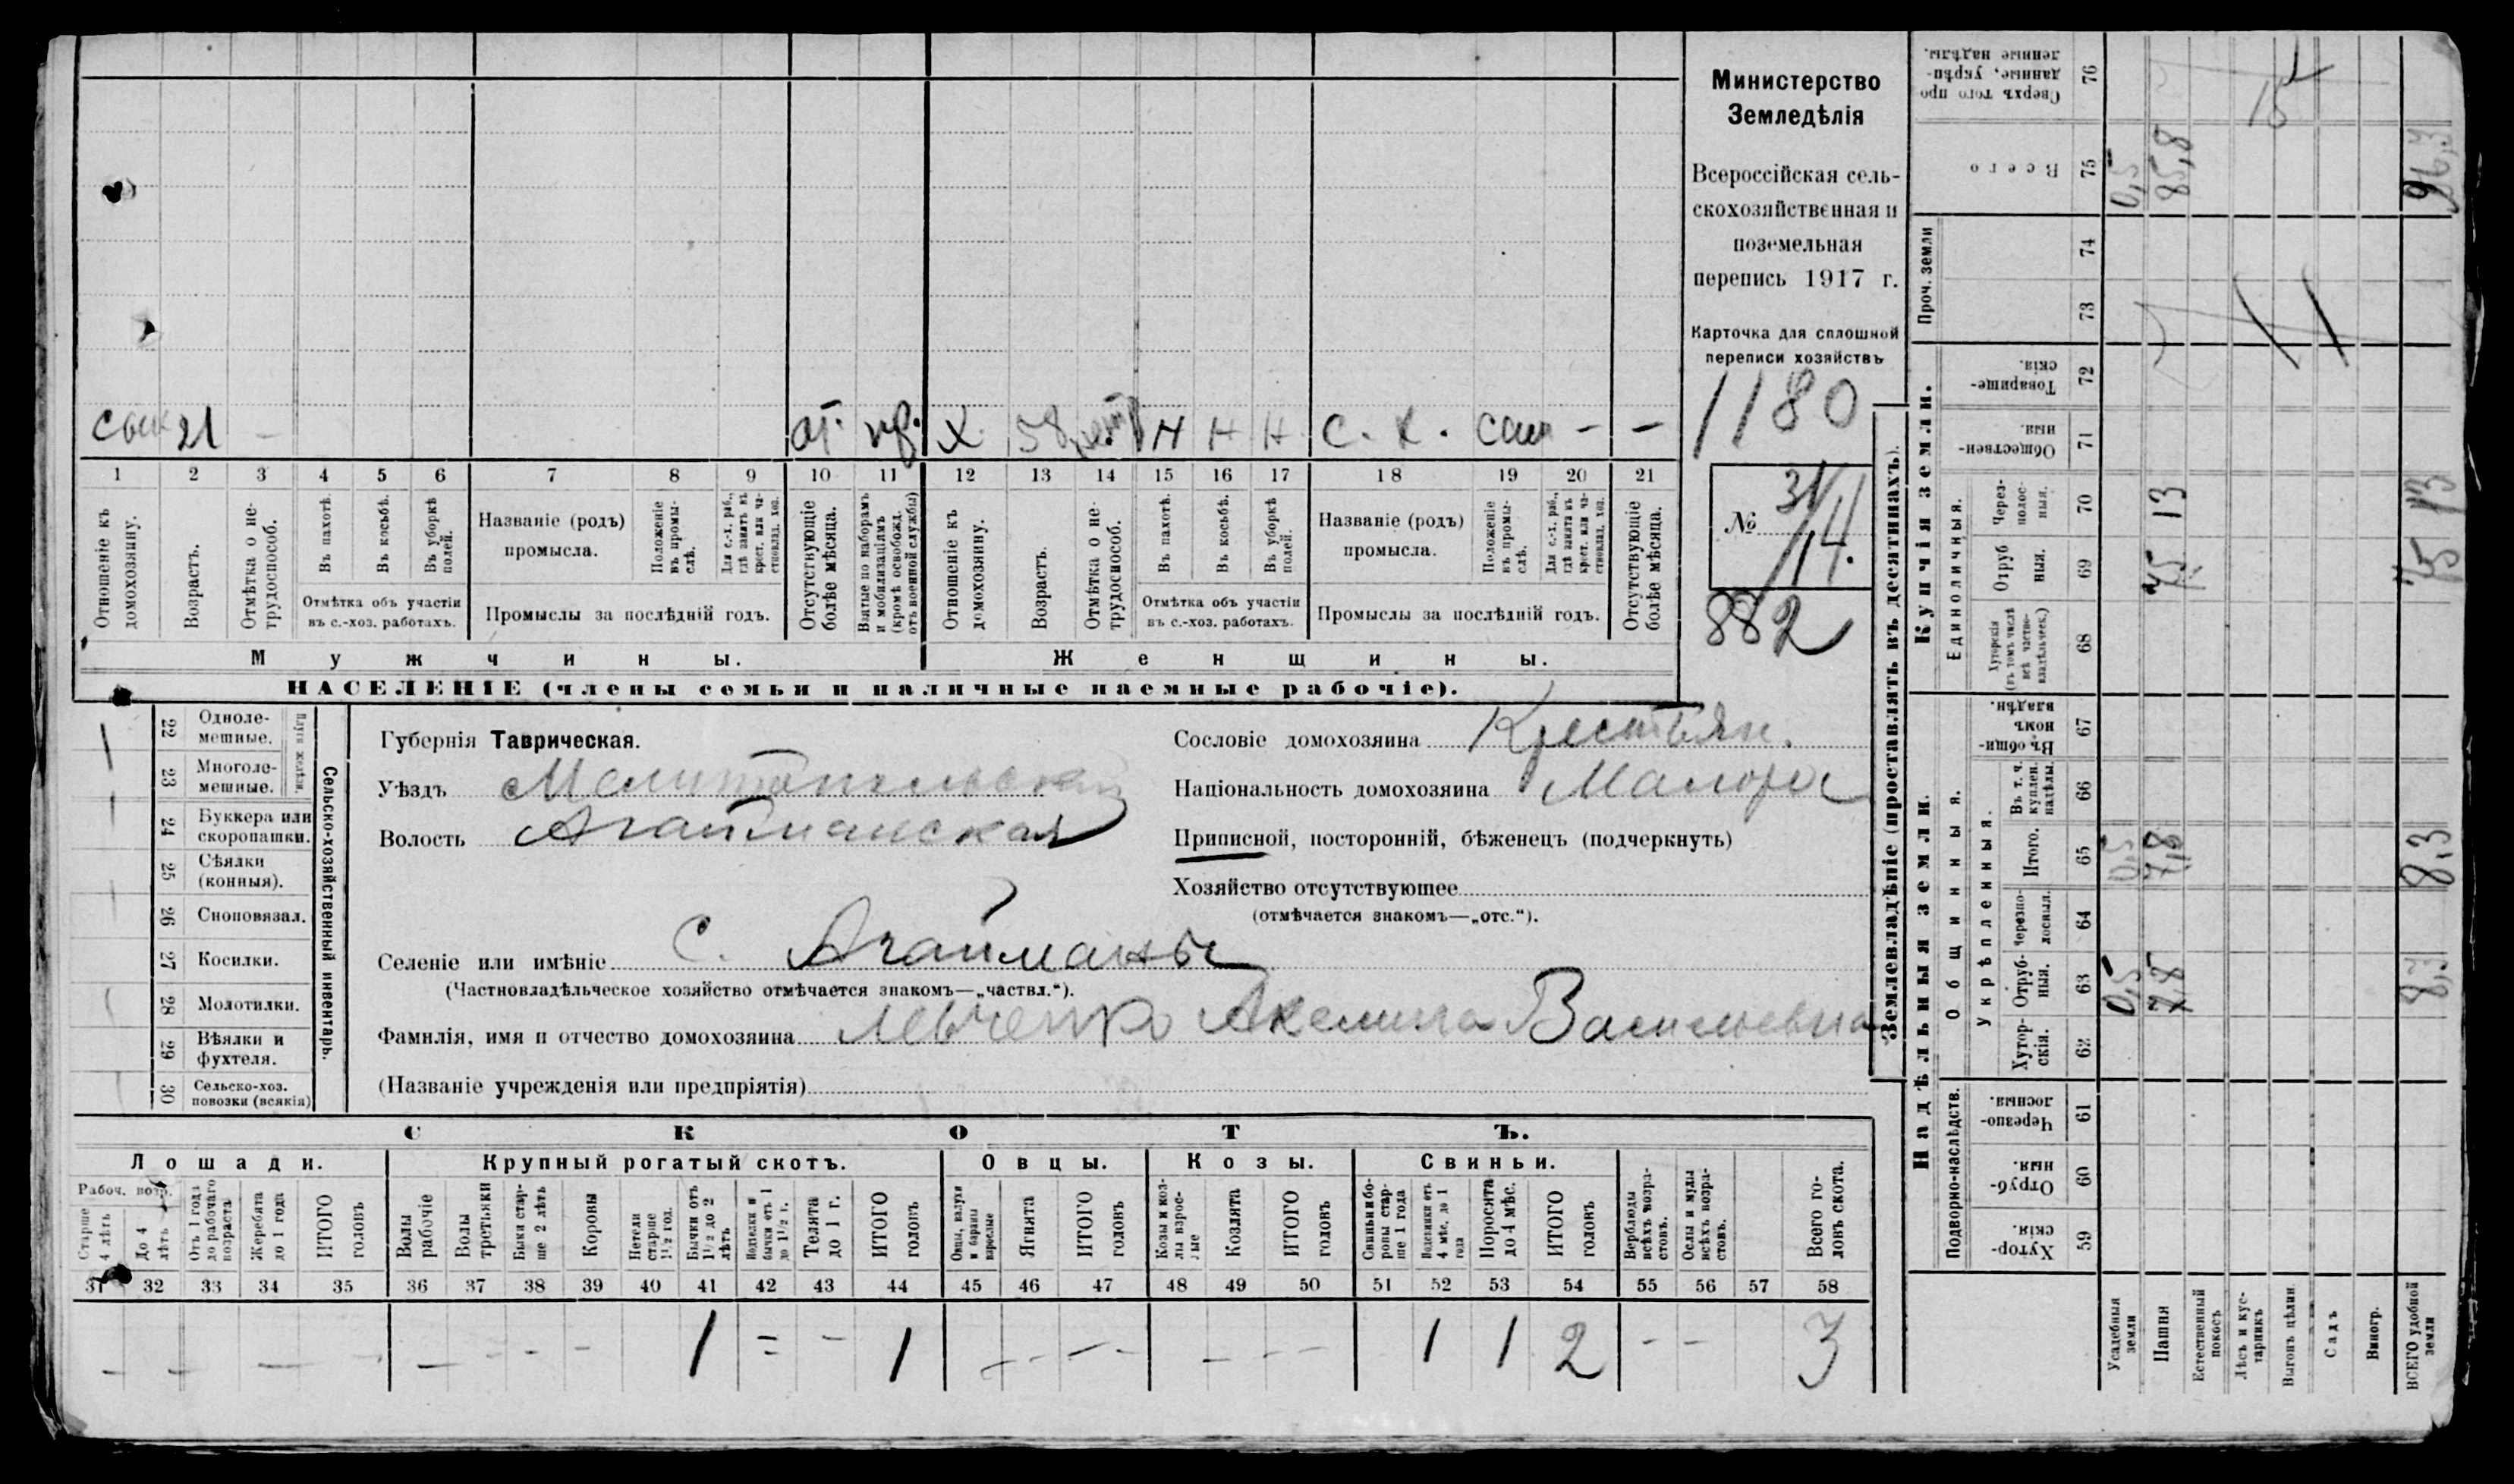 сын 21 – от. пр. Х. 58 Н Н Н С. Х. сам – –
1 2 3 4 5 6 7 8 9 10 11 12 13 14 15 16 17 18 19 20 21
Отношеніе къ домохозяину.
Возрастъ.
Отмѣтка о нетрудоспособ.
Въ пахотѣ.
Въ косьбѣ.
Въ уборкѣ полей.
Отмѣтка объ участіи
въ с.-хоз. работахъ.
Названіе (родъ)
промысла.
Положеніе въ промыслѣ.
Для с.-х. раб., гдѣ занятъ въ крест. или частновлад. хоз.
Промыслы за послѣдній годъ.
Отсутствующіе болѣе мѣсяца.
Взятые по наборамъ и мобилизаціямъ (кромѣ освобожд. отъ военной службы)
Отношеніе къ домохозяину.
Возрастъ.
Отмѣтка о нетрудоспособ.
Въ пахотѣ.
Въ косьбѣ.
Въ уборкѣ полей.
Отмѣтка объ участіи
въ с.-хоз. работахъ.
Названіе (родъ)
промысла.
Положеніе въ промыслѣ.
Для с.-х. раб., гдѣ занята въ крест. или частновлад. хоз.
Промыслы за послѣдній годъ.
Отсутствующіе болѣе мѣсяца.
Мужчины.
Женщины.
НАСЕЛЕНІЕ (члены семьи и наличные наемные рабочіе).
Министерство
Земледѣлія
Всероссійская сель-
скохозяйственная и
поземельная
перепись 1917 г.
Карточка для сплошной
переписи хозяйствъ
1180
№ 31/14.
882
22 Одноле-
мешные.
23 Многоле-
мешные.
24 Буккера или
скоропашки.
25 Сѣялки
(конныя).
26 Сноповязал.
27 Косилки.
28 Молотилки.
29 Вѣялки и
фухтеля.
30 Сельско-хоз.
повозки (всякія)
Сельско-хозяйственный инвентарь.
Губернія Таврическая.
Уѣздъ Мелитопольскій
Волость Агайманская
Селеніе или имѣніе С. Агайманы
(Частновладѣльческое хозяйство отмѣчается знакомъ—„частвл.“).
Фамилія, имя и отчество домохозяина Левченко Акелина Васильевна
(Названіе учрежденія или предпріятія)
Сословіе домохозяина Крестьян.
Національность домохозяина Малорос
Приписной, посторонній, бѣженецъ (подчеркнуть)
Хозяйство отсутствующее
(отмѣчается знакомъ—„отс.“).
СКОТЪ.
Лошади. Крупный рогатый скотъ. Овцы. Козы. Свиньи.
Рабоч. возр.
Старше 4 лѣтъ
До 4 лѣтъ
Отъ 1 года до рабочаго возраста
Жеребята до 1 года
ИТОГО головъ
Волы рабочіе
Волы третьяки
Быки старше 2 лѣтъ
Коровы
Нетели старше 1½ год.
Бычки отъ 1½ до 2 лѣтъ
Бычки отъ 1 до 1½ г.
Телята до 1 г.
ИТОГО головъ
Овцы, валухи и бараны взрослые
Ягнята
ИТОГО головъ
Козы и козлы взрослые
Козлята
ИТОГО головъ
Свиньи и боровы старше 1 года
Подсвинки отъ 4 мѣс. до 1 года
Поросята до 4 мѣс.
ИТОГО головъ
Верблюды всѣхъ возрастовъ.
Ослы и мулы всѣхъ возрастовъ.
Всего головъ скота.
31 32 33 34 35 36 37 38 39 40 41 42 43 44 45 46 47 48 49 50 51 52 53 54 55 56 57 58
– – – – – – – – 1 = – 1 – – – – – – 1 1 2 – – 3
Землевладѣніе (проставлять въ десятинахъ).
Надѣльныя земли.
Купчія земли.
Проч. земли
Подворно-наслѣдств.
Общинныя.
Укрѣпленныя.
Единоличныя.
Хутор-
скія. 59
Отруб-
ныя. 60
Черезпо-
лосныя. 61
Хутор-
скія. 62
Отруб-
ныя. 63
Черезпо-
лосныя. 64
Итого. 65
Въ т. ч.
куплен.
надѣлы. 66
Въ общи-
номъ
владѣн. 67
Хуторскія
(въ томъ числѣ
всѣ частно-
владѣльческ.) 68
Отруб
ныя. 69
Через-
полос-
ныя. 70
Обществен-
ныя. 71
Товарище-
скія. 72
73
74
Всего 75
Сверхъ того про
данные, укрѣп-
ленные надѣлы. 76
Усадебныя
земли
0,5 0,5 0,5
Пашня
7,8 7,8 75 13 85,8
Естественный
покосъ
Лѣсъ и кус-
тарникъ
Выгонъ цѣлин.
Садъ
Виногр.
ВСЕГО удобной
земли
8,3 8,3 75 13 96,3